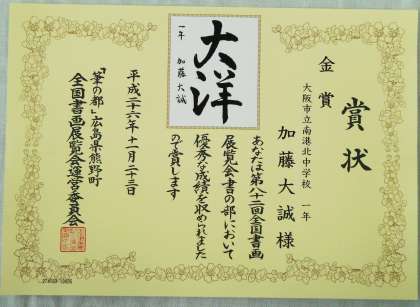 賞状
金賞
大阪市立南港北中学校 一年
加藤大誠 様
あなたは第八十二回全国書画
展覧会書の部において
優秀な成績を収められました
ので賞します
大洋
一年 加藤大誠
平成二十六年十一月二十三日
「筆の都」広島県熊野町
全国書画展覧会運営委員会